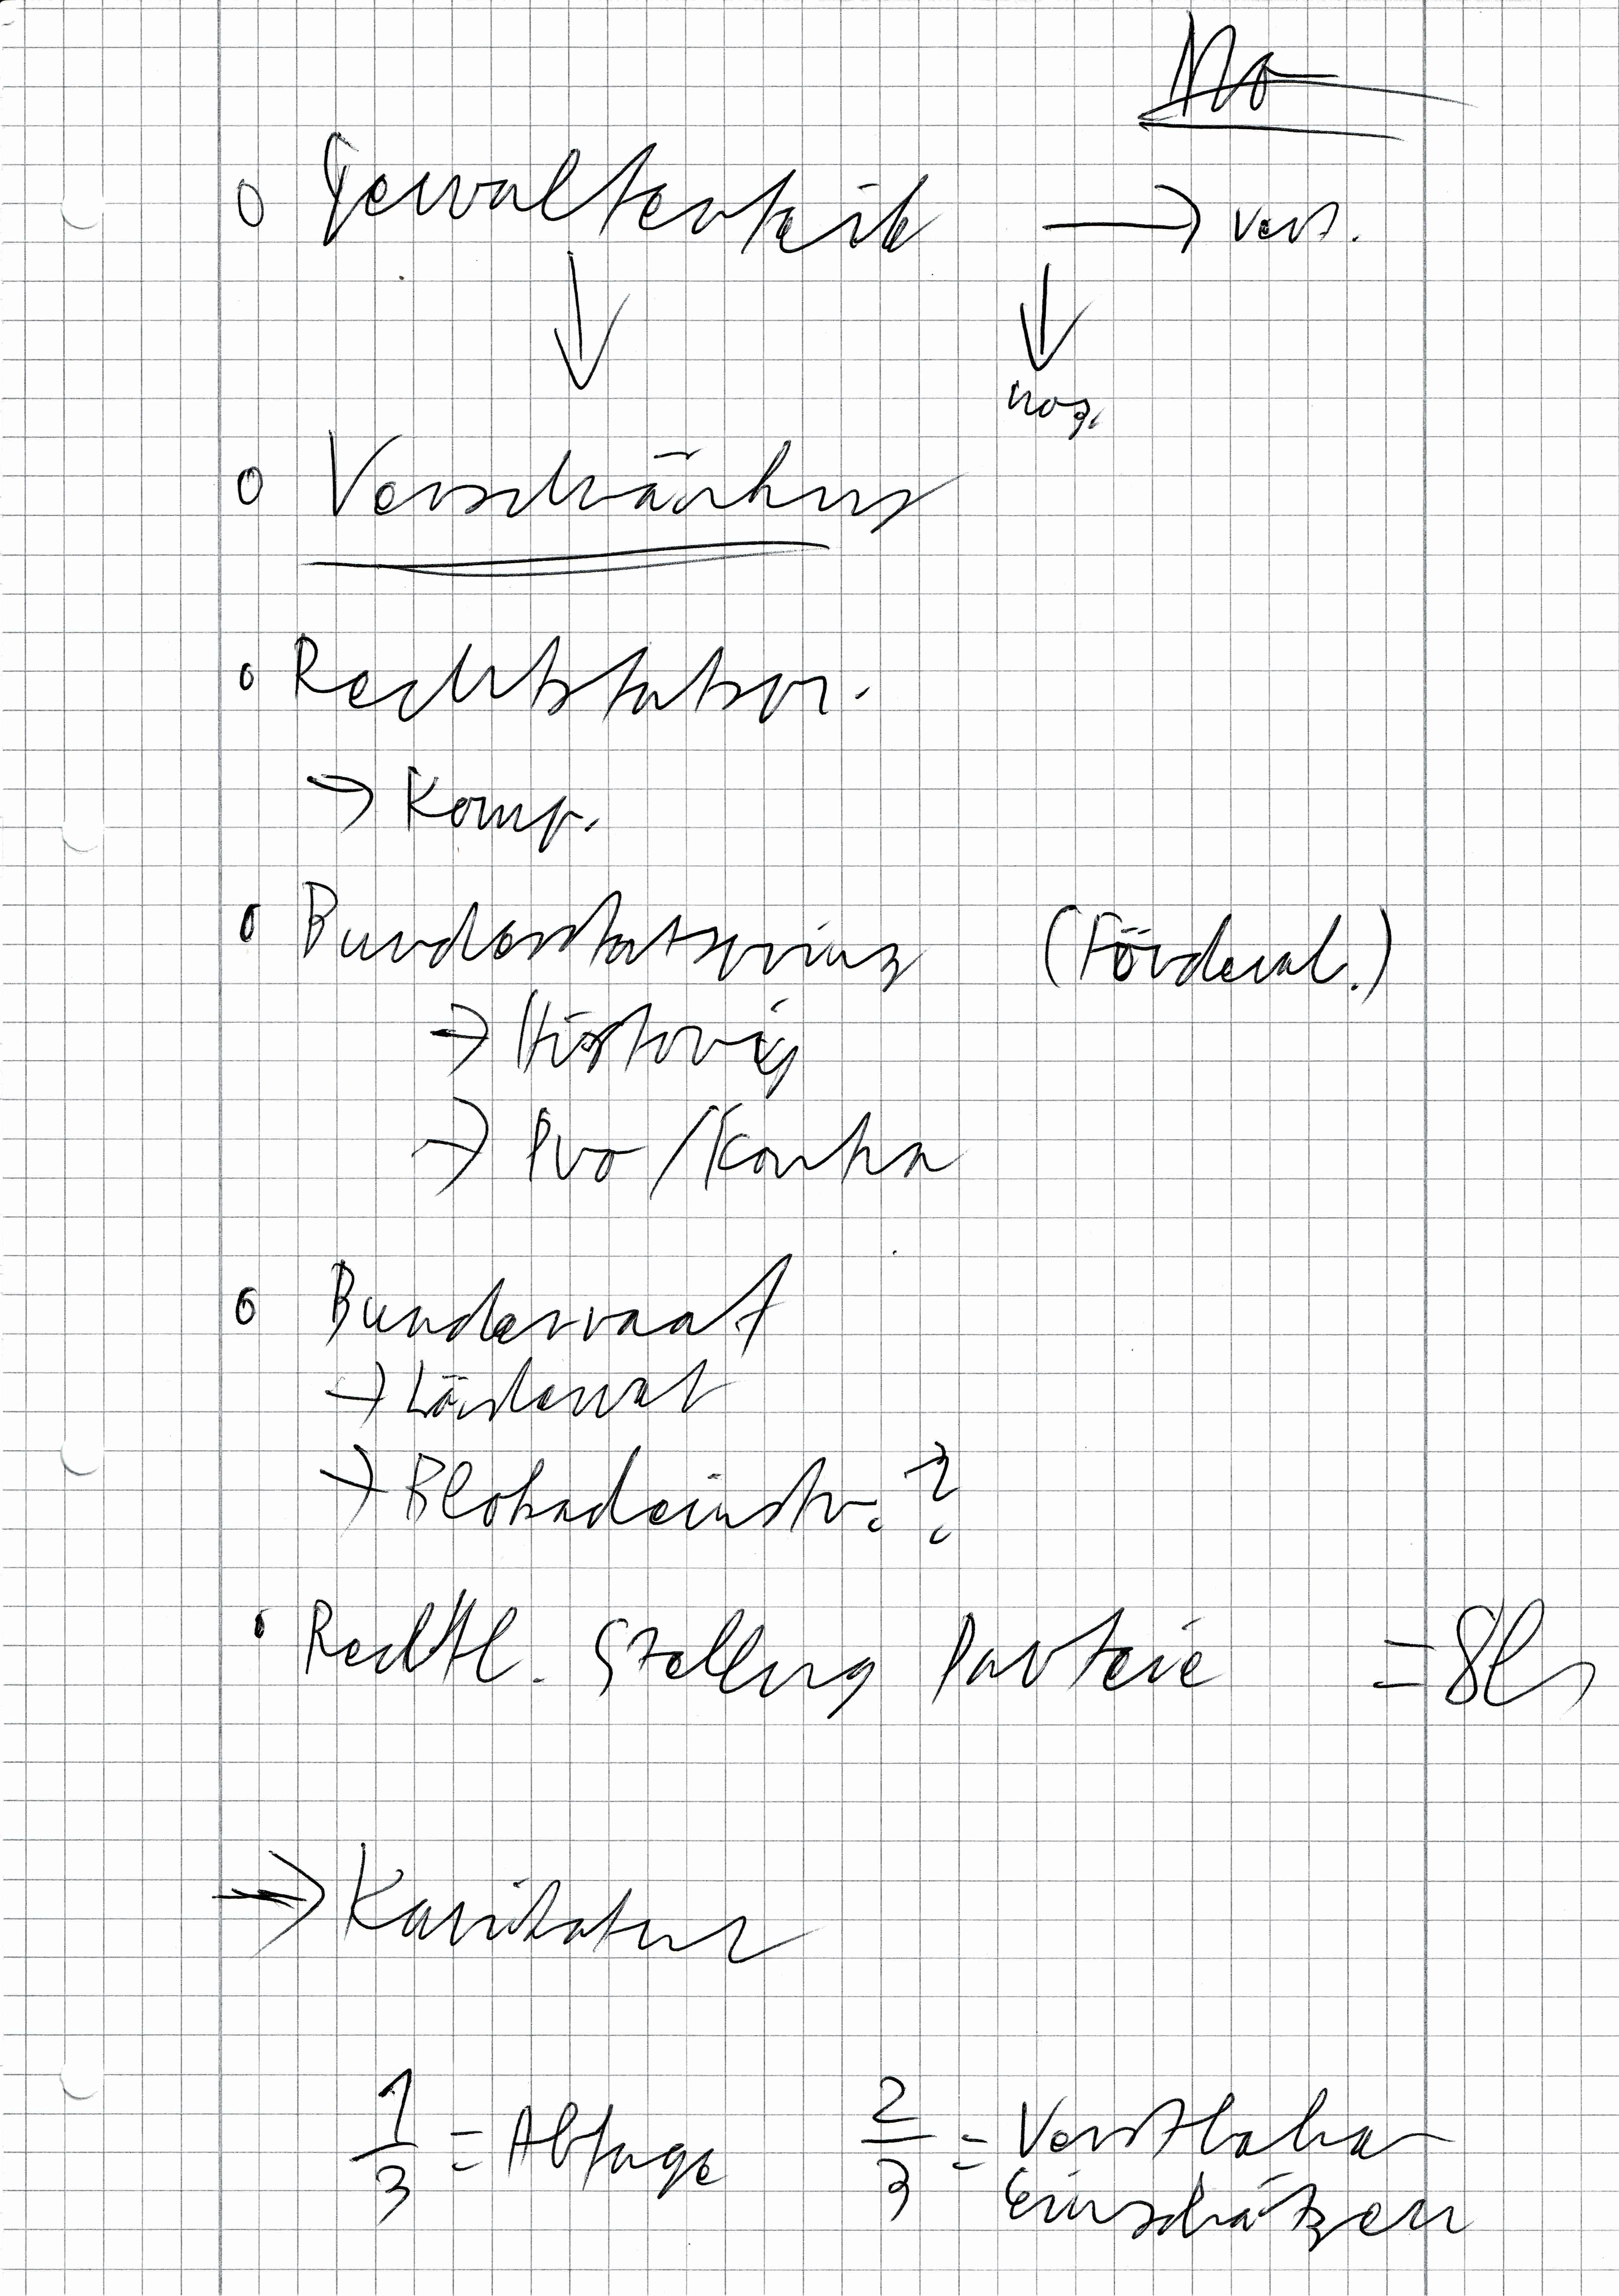 Mo
o Gewaltenteil → vert.
↓ ↓
hoz.
o Verschränkung
o Rechtstatspr.
→ Komp.
o Bundesstatsprinz (Förderal.)
→ Historig
→ Pro/Kontra
o Bundesraat
→ Länderrat
→ Blokadeinstr.?
• Rechtl. Stellung Parteie =
→ Karikatur
1/3 = Abfrage 2/3 =
Einschätzen